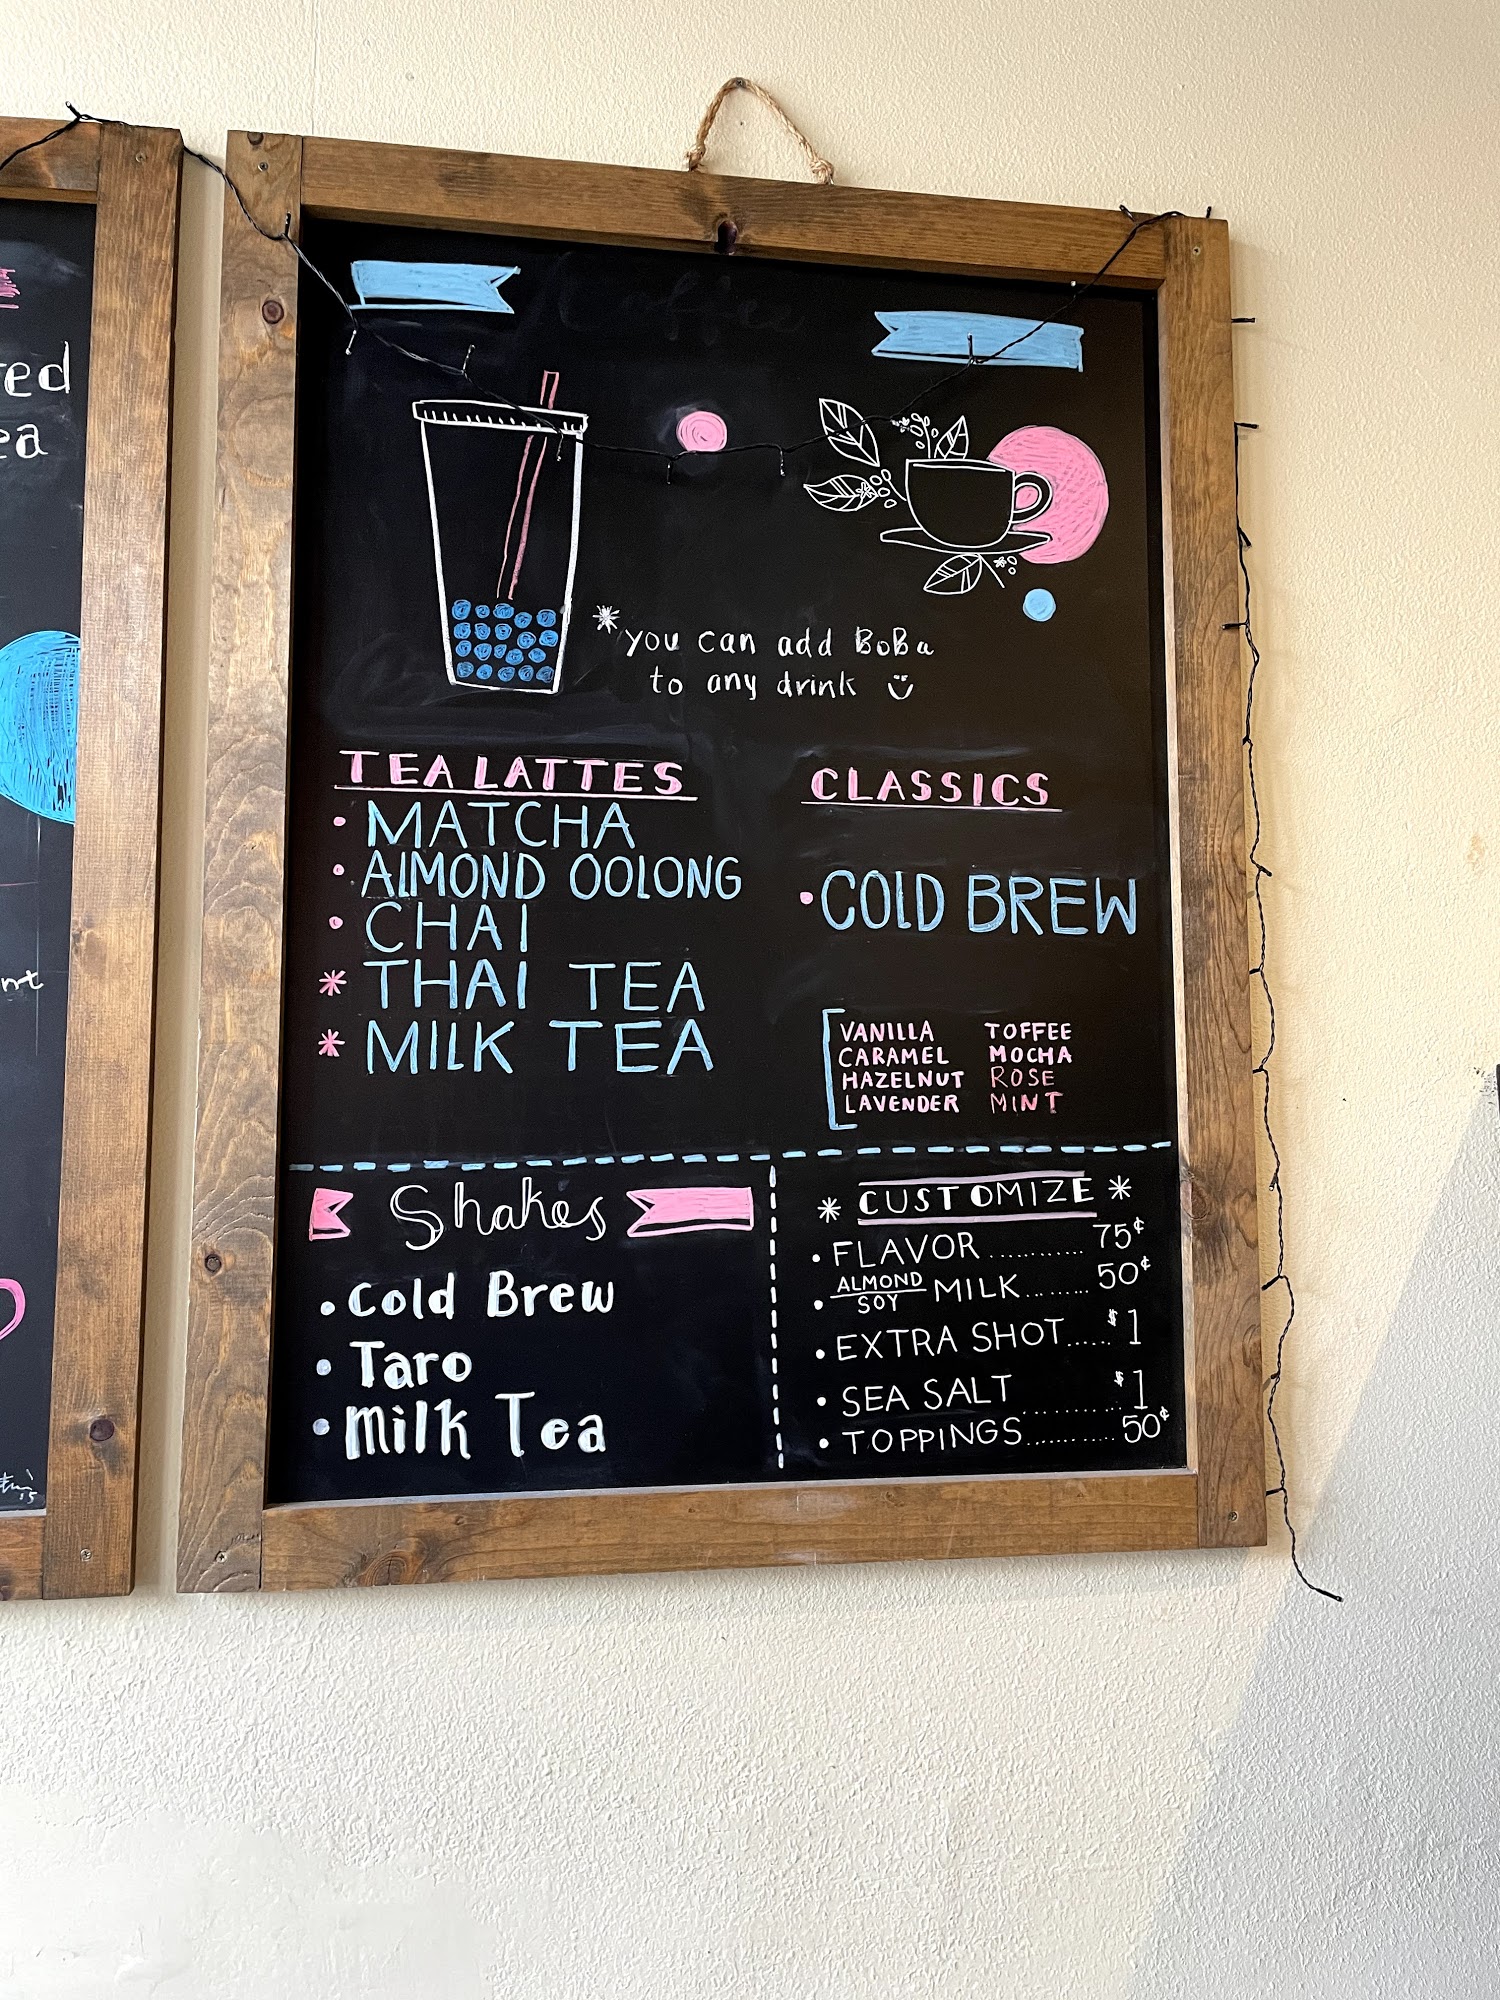 red
ea
nt
Coffee
*you can add BoBa
to any drink
TEA LATTES
• MATCHA
• ALMOND OOLONG
• CHAI
* THAI TEA
* MILK TEA
CLASSICS
• COLD BREW
VANILLA TOFFEE
CARAMEL MOCHA
HAZELNUT ROSE
LAVENDER MINT
Shakes
• Cold Brew
• Taro
• Milk Tea
* CUSTOMIZE *
• FLAVOR ............ 75¢
• ALMOND
SOY MILK ......... 50¢
• EXTRA SHOT...... $1
• SEA SALT ............ $1
• TOPPINGS............ 50¢